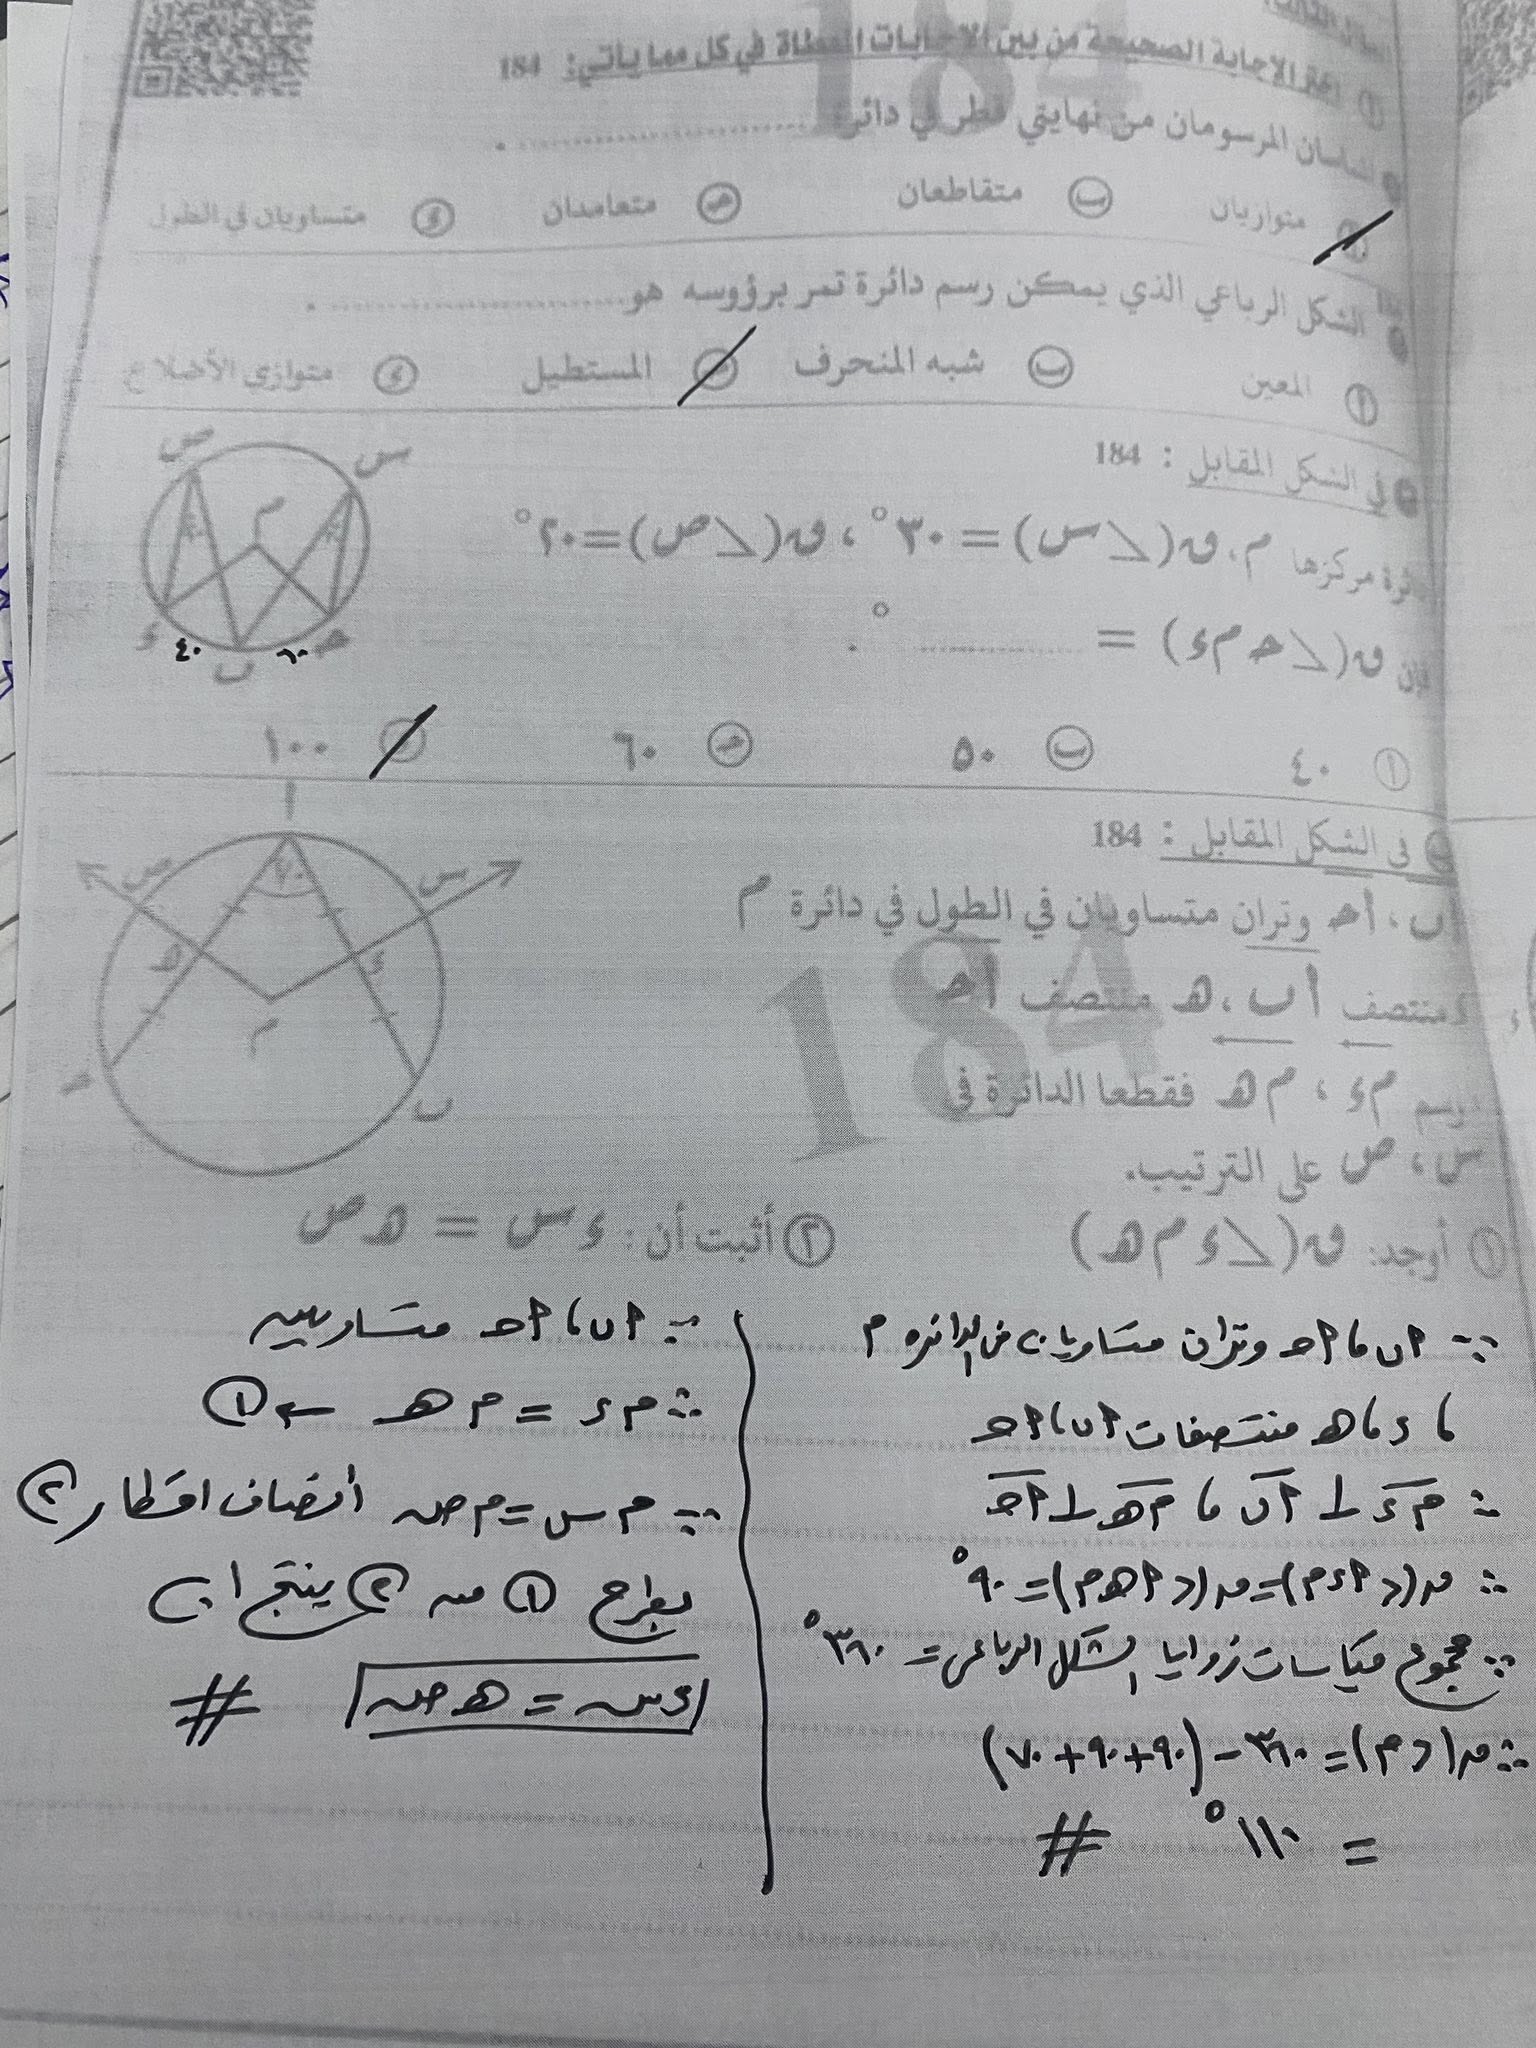 اختر الإجابة الصحيحة من بين الإجابات المعطاة في كل مما يأتي: 184
المماسان المرسومان من نهايتي قطر في دائرة .
متوازيان ب متقاطعان ج متعامدان د متساويان في الطول
الشكل الرباعي الذي يمكن رسم دائرة تمر برؤوسه هو .
أ المعين ب شبه المنحرف ج المستطيل د متوازي الأضلاع
في الشكل المقابل : 184
دائرة مركزها م، ق(∠س) = ٣٠°، ق(∠ص) = ٢٠°
فإن ق(∠حمء) = °.
س ص م ء ب ح
٤٠ ٦٠
أ ٤٠ ب ٥٠ ج ٦٠ ١٠٠
في الشكل المقابل : 184
أب، أح وتران متساويان في الطول في دائرة م
ء منتصف أب، ه منتصف أح
رسم مء، مه فقطعا الدائرة في
س، ص على الترتيب.
١ أوجد: ق(∠ءمه) ٢ أثبت أن: ءس = هص
أ س ص ٧٠ ه ء م ح ب
184
∵ أب، أح وتران متساويان في الدائرة م
، ء، ه منتصفات أب، أح
∴ مء ⊥ أب، مه ⊥ أح
∴ ق(∠أءم) = ق(∠أهم) = ٩٠°
∵ مجموع قياسات زوايا الشكل الرباعي = ٣٦٠°
∴ ق(∠م) = ٣٦٠ - (٩٠+٩٠+٧٠)
= ١١٠° #
∵ أب، أح متساويين
∴ مء = مه ← ①
∵ مس = مص أنصاف أقطار ②
بطرح ① من ② ينتج أن
ءس = هص #